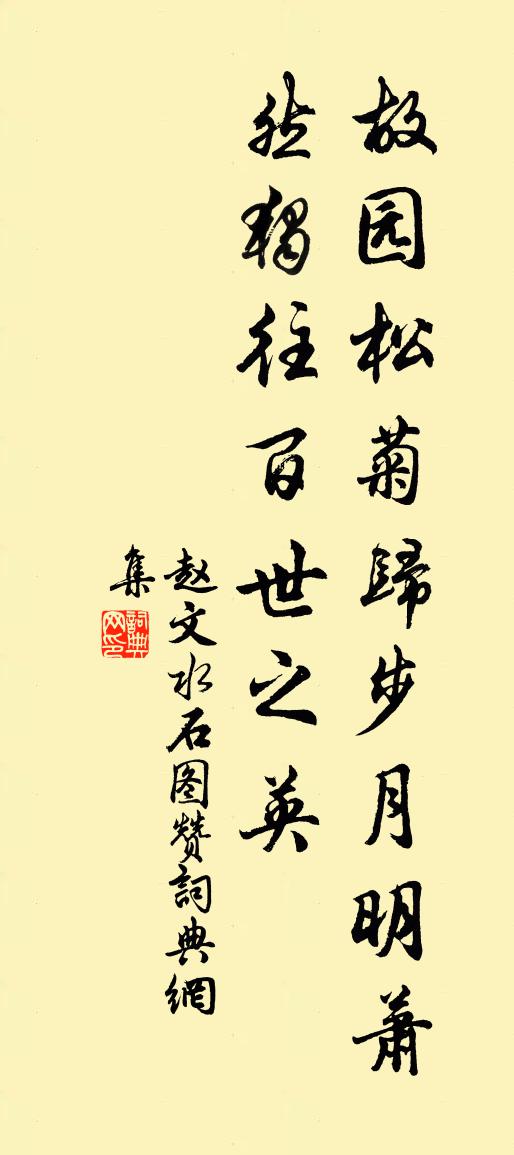 故园松菊歸步月明萧
然独往百世之英
赵文水石图赞詞典網
集
詞典
网印